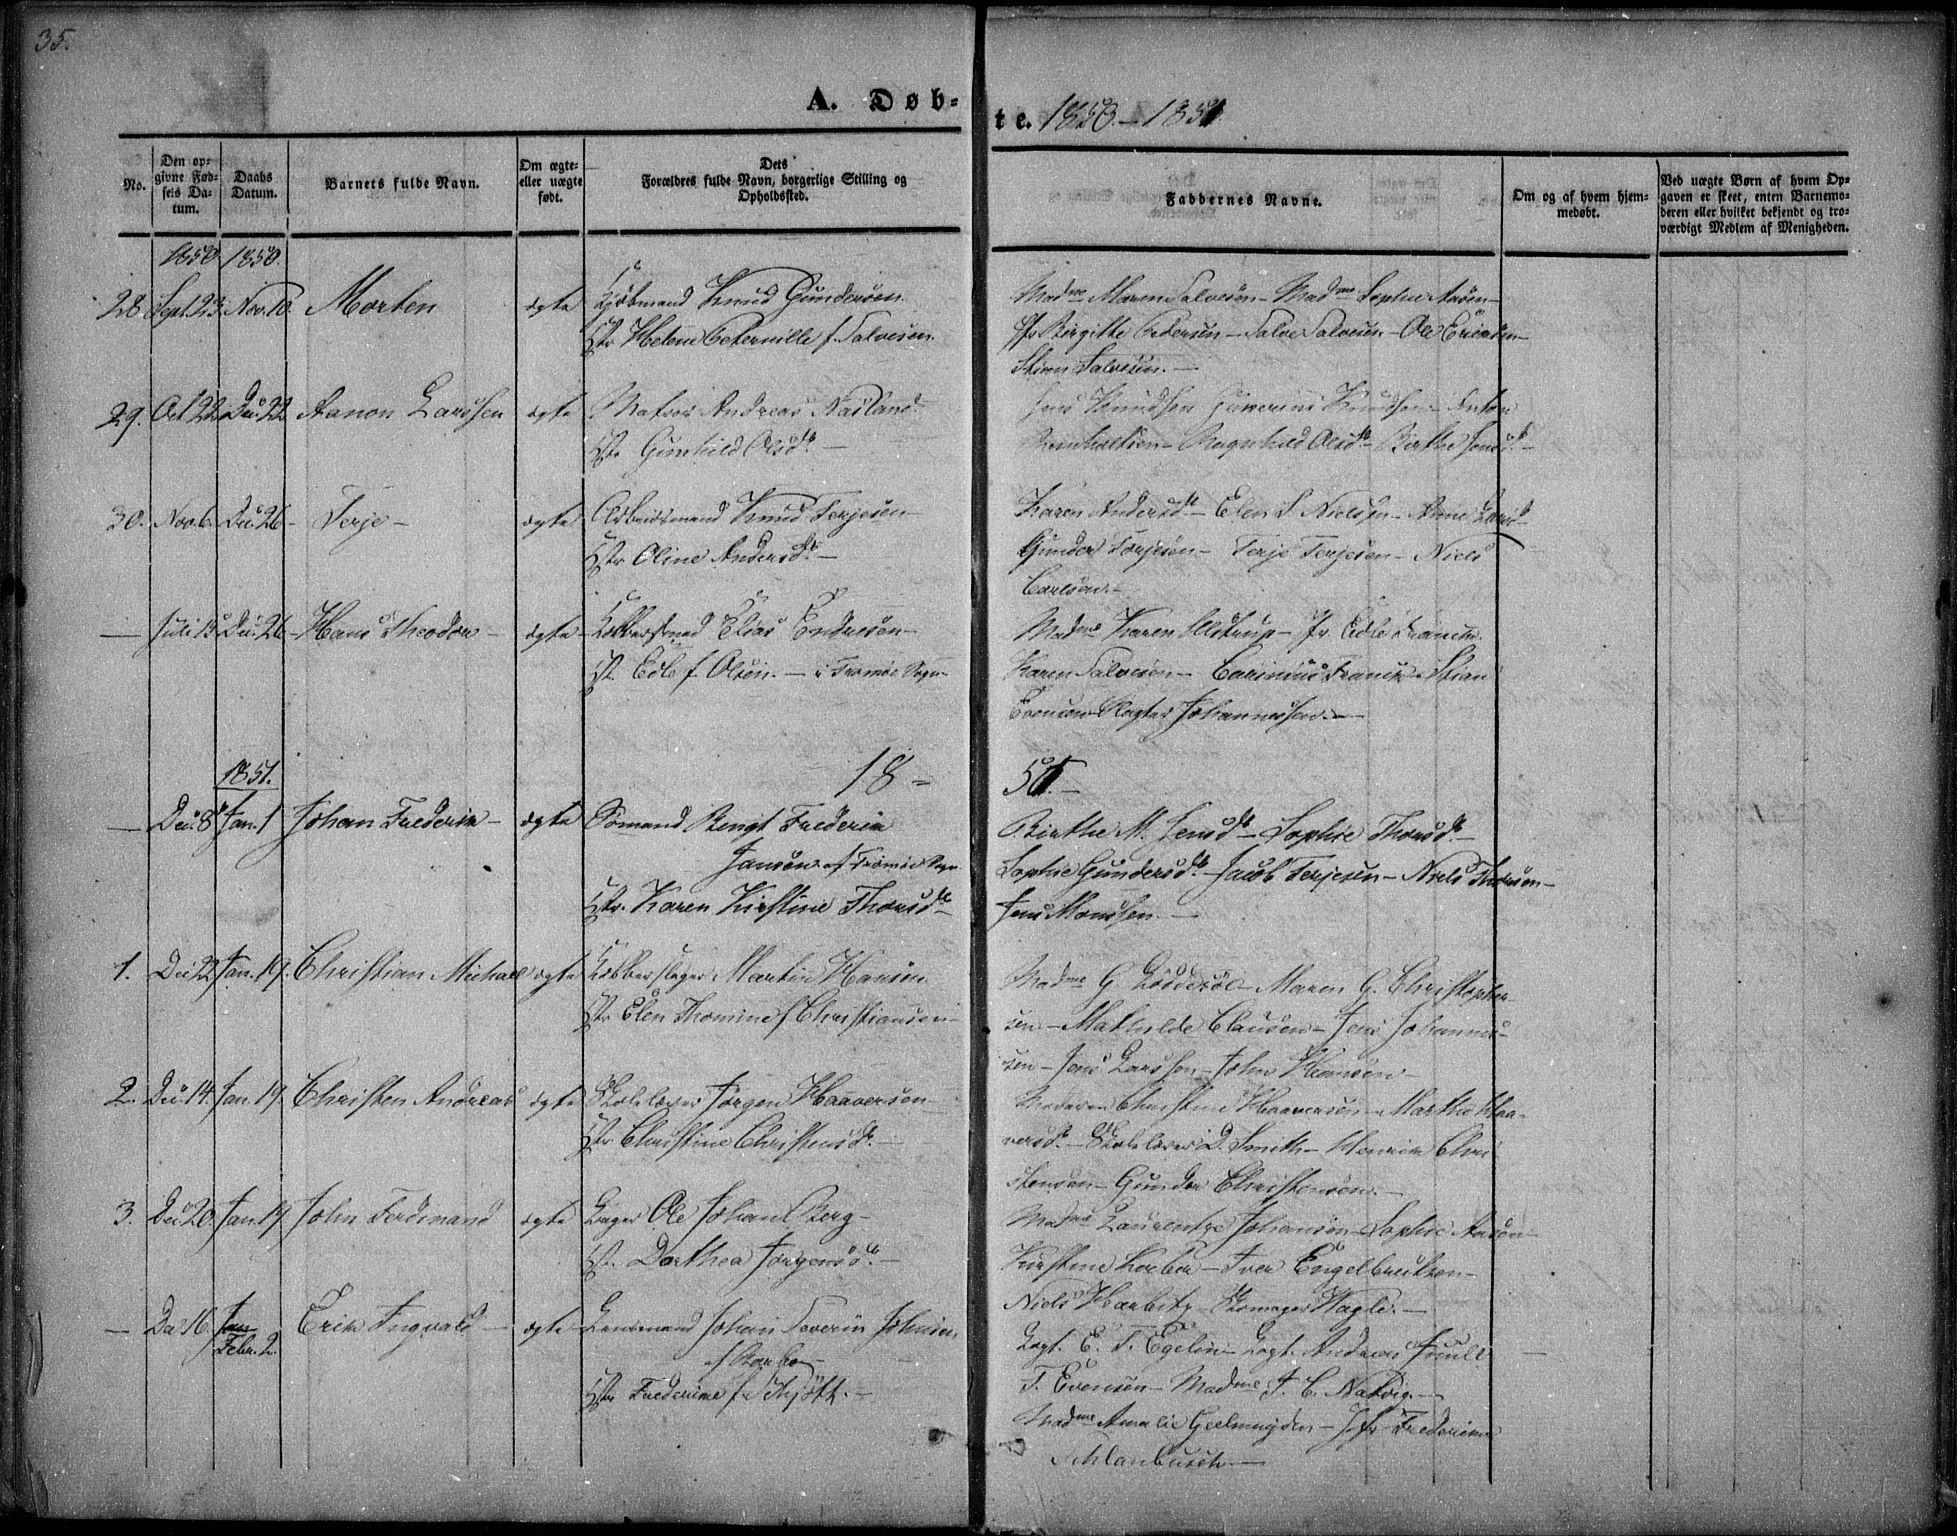 35.
A. Døb-
te. 1850.-1851
No.
Den op-
givne Fød-
sels Da-
tum.
Daabs
Datum.
Barnets fulde Navn.
Om ægte-
eller uægte
født.
Dets
Forældres fulde Navn, borgerlige Stilling og
Opholdssted.
Faddernes Navne.
Om og af hvem hjem-
medøbt.
Ved uægte Børn af hvem Op-
gaven er skeet, enten Barnemo-
deren eller hvilket bekjendt og tro-
værdigt Medlem af Menigheden.
1850 1850.
28 Sept. 23. Nov. 10. Morten ægte Kjøbmand Knud Gundersen
Helene Peternille f. Salvesen.
Madme Maren Salvesen - Madme Sophie Aasen -
Jfr Birgitte Pedersen - Salve Salvesen - Ole Ericksen -
Stian Salvesen. -
29. Oct 22. Dec. 22. Aanon Larssen ægte Matros Andreas
Gunhild Olsdt. -
Jens Knudsen Knudsen - Anton
- Ragnhild Olsdt - Birthe Jensdt. -
30. Nov. 6. Dec. 26 - Terje - ægte Arbeidsmand Knud Terjesen -
Oline Andersdt. -
Karen Andersdt - Elen S. Nielsen - Anne Larsdt
Gunder Terjesen - Terje Terjesen - Niels
Carlsen. -
- Juli 15. Dec. 26 - Hans Theodor - ægte - Elias Endresen -
Edle f. Olsen. - i Tromøe Sogn -
Madme Karen Ulstrup - Jfr. Edle Franck
Karen Salvesen - Franck - Stian
Evensen - Johannessen. -
1851.
18 =
51. -
- Dec. 8 Jan. 1 Johan Frederik - ægte Sømand Bengt Frederik
Jansen af Tromøe Sogn
Karen Kirstine Thorsdt -
Birthe M. Jensdt - Sophie Thorsdt
Sophie Gundersdt - Jacob Terjesen - Niels Thorsen -
Jens Monssen. -
1. Dec. 22. Jan. 19. Christian Michael ægte Kobberslager Martin Hansen.
Elen Thomine f Christiansen -
Madme G. Løddesøl - Maren G. Christopher-
sen - Mathilde Clausen - Jens Johannes-
sen - Jens Larssen - John Hansen -
2. Dec. 14. Jan. 19. Christen Andreas ægte Skolelærer Jørgen Haaversen
Christine Christensdt. -
Moderen Christine Haaversen - Marthe Haa-
versdt. - Skolelærer D. Smith - Henrik Chri-
stensen - Gunder Christensen. -
3. Dec. 20. Jan. 19. John Ferdinand ægte Bager Ole Johan Berg -
Dorthea Jørgensdt. -
Madme Laurentze Johansen - Sophie Aasen -
Kirstine - Iver Engelbretsen -
Niels Harbitz - Skomager Wagle. -
- Dec 16. Jan Febr. 2. Erik Ingvald - ægte - Lensmand Johan Severin Johnsen,
af
Frederikke f. Schjøtt. -
Capt. E. T. Egelin - Capt. Andreas Juull -
T. Evensen - Madme J. C. Natvig. -
Madme Amalie Geelmuyden - Jfr Frederikke
Schlanbusch. -